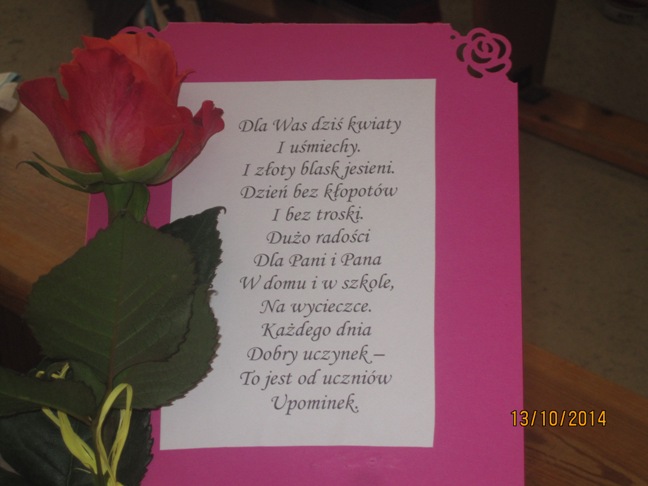 Dla Was dziś kwiaty
I uśmiechy.
I złoty blask jesieni.
Dzień bez kłopotów
I bez troski.
Dużo radości
Dla Pani i Pana
W domu i w szkole,
Na wycieczce.
Każdego dnia
Dobry uczynek –
To jest od uczniów
Upominek.
13/10/2014